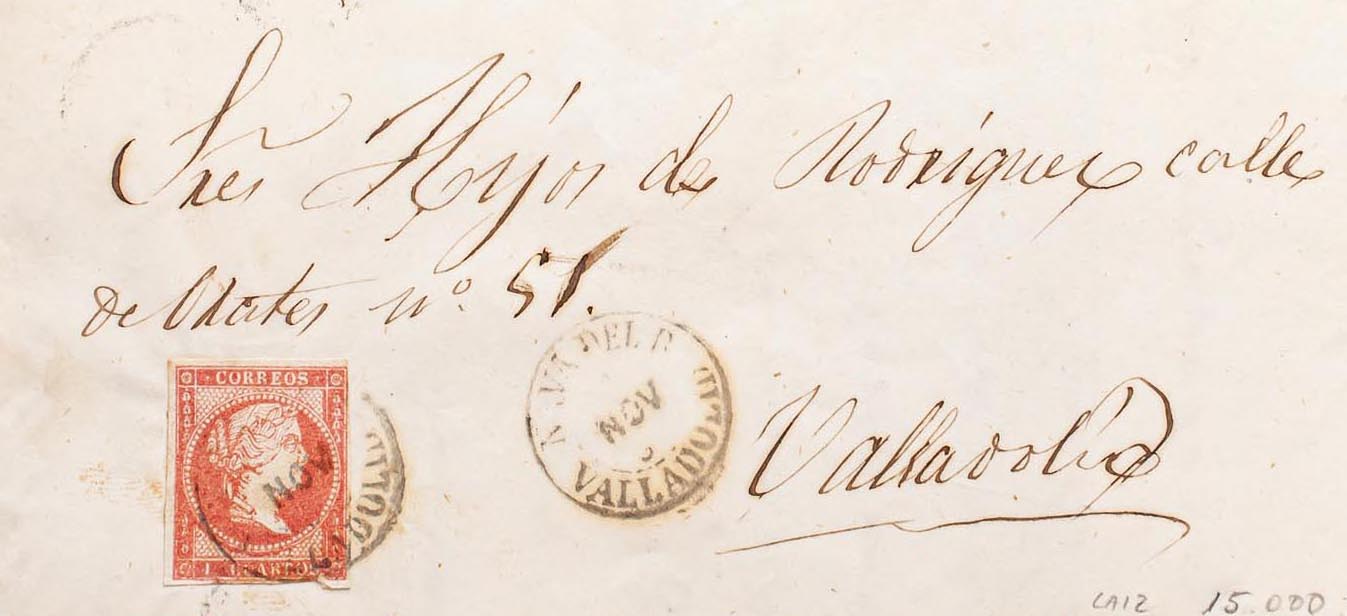 Sres Hijos de Rodriguez calle
de Orates nº 51.
CORREOS
NOV
NAVA DEL R
NOV
VALLADOLID
Valladolid
LA12 15.000